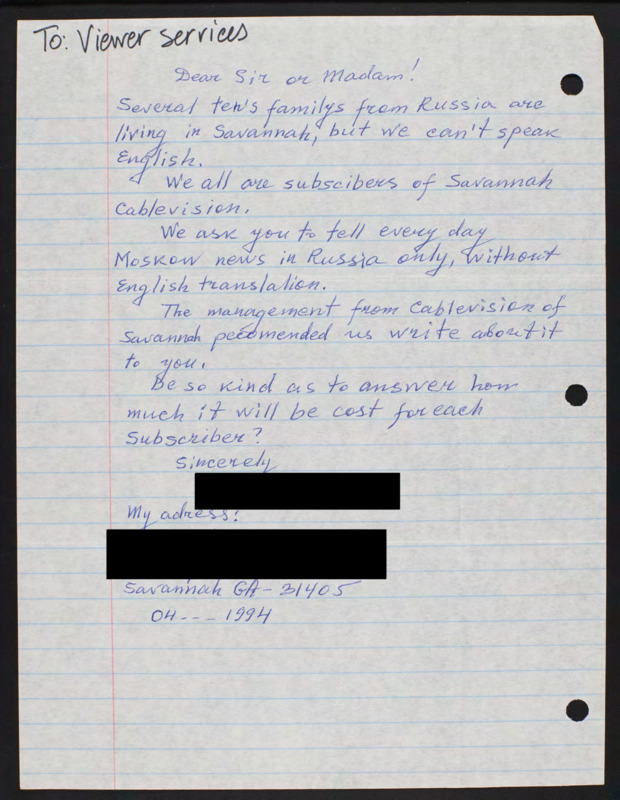 To: Viewer services
Dear Sir or Madam!
Several ten's familys from Russia are
living in Savannah, but we can't speak
English.
We all are subscibers of Savannah
Cablevision.
We ask you to tell every day
Moskow news in Russia only, without
English translation.
The management from Cablevision of
Savannah pecomended us write about it
to you.
Be so kind as to answer how
much it will be cost for each
Subscriber?
Sincerely
My adress:
Savannah GA-31405
04--- 1994